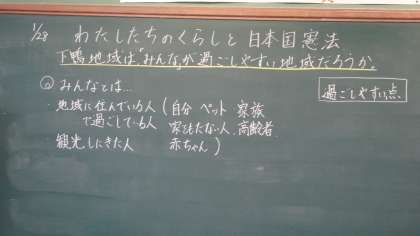 1/28 わたしたちのくらしと日本国憲法
下鴨地域は「みんな」が過ごしやすい地域だろうか。
◎みんなとは…
・地域に住んでいる人(自分 ペット 家族
で過ごしている人 家をもたない人、高齢者
観光しにきた人 赤ちゃん)
過ごしやすい点